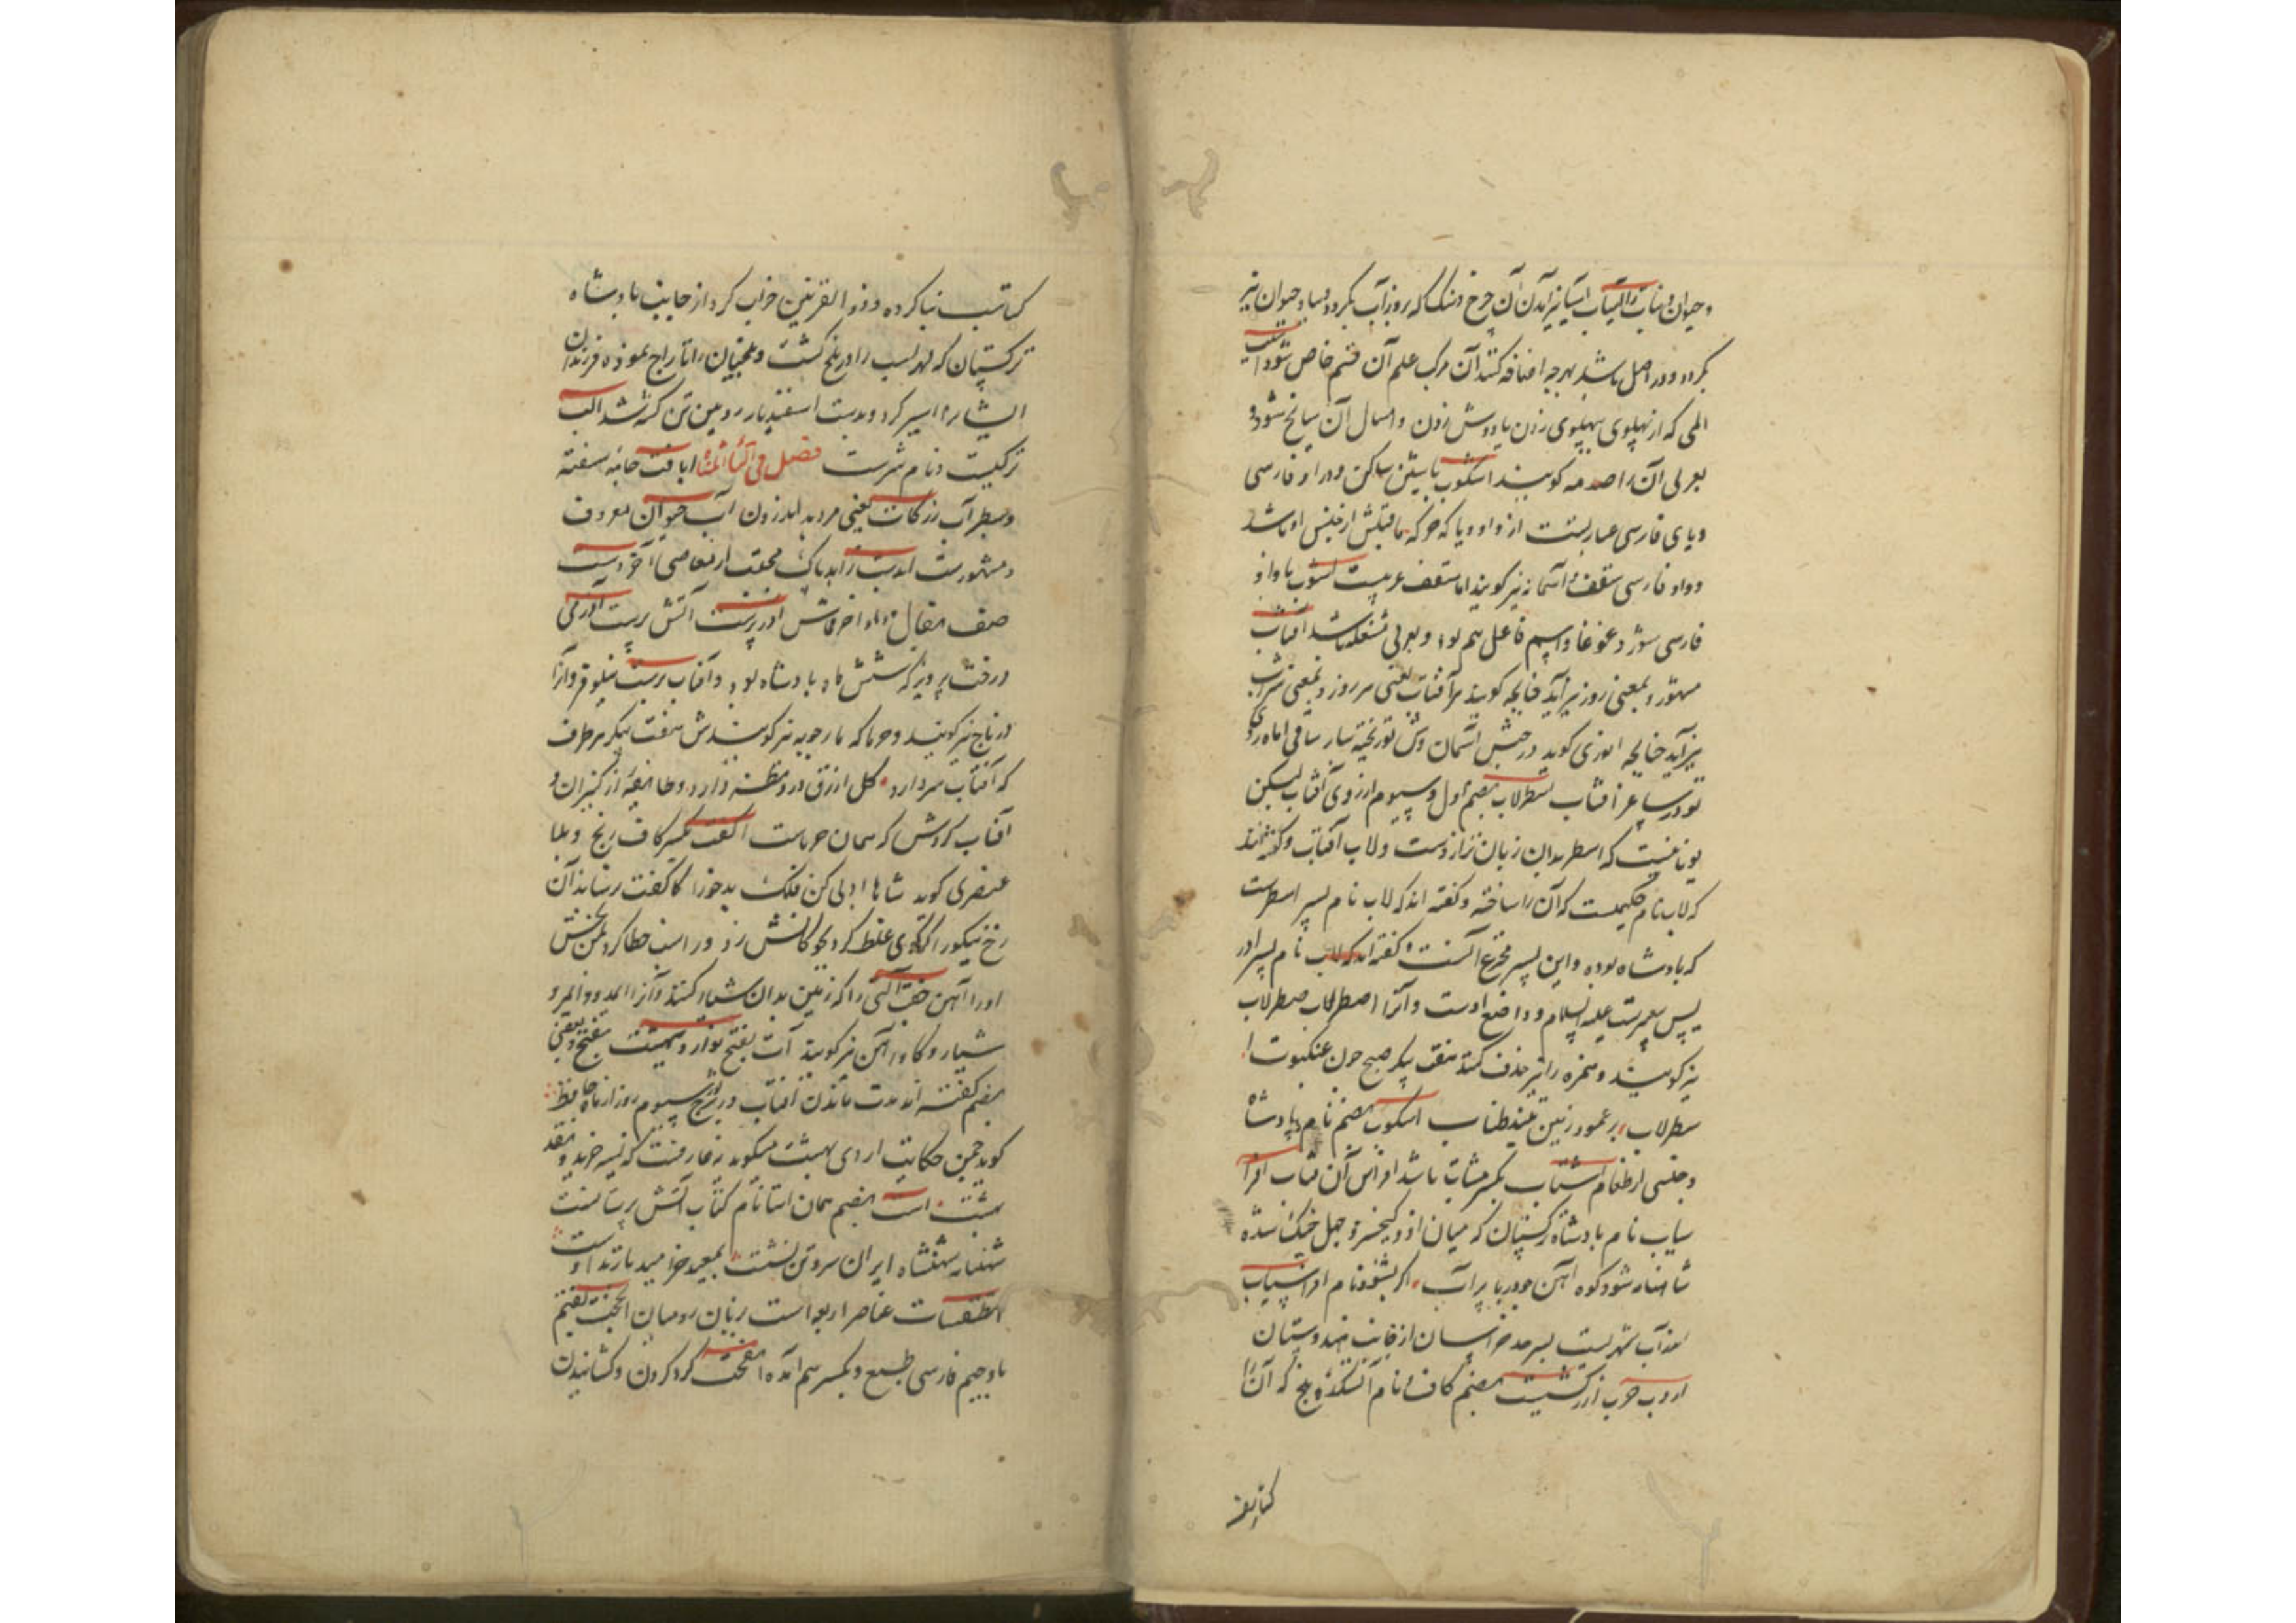 و حیوان و نبات را آسیاب آسیا نیز آمدن آن چرخ و سنگ که بزور آب بگردد بباد و حیوان نیز
بگردد و در اصل باشد بهرچه اضافه کنند آن مرکب علم آن قسم خاص شود آسیب
المی که از پهلوی بپهلوی زدن یا دوش زدن و امثال آن سانح شود و
بعربی آن را صدمه گویند اسکوب با شین ساکن و در او فارسی
و یای فارسی عبارتست از واو و یا که حرکه ماقبلش از جنس او باشد
و واو فارسی سقف و آسمانه نیز گویند اما سقف عربیست آشوب با واو
فارسی شور و غوغا و اسم فاعل هم بود و بعربی فتنه باشد آفتاب
مشهور و بمعنی روز نیز آید چنانچه گویند سر آفتاب یعنی سر روز و بمعنی شراب
نیز آید چنانچه انوری گوید در جشن آسمان وش تو ریخته بناز ساقی ماه روی
تو در ساغر آفتاب اسطرلاب بضم اول و سیوم ترازوی آفتاب لیکن
یونانیست که اسطر بدان زبان ترازوست و لاب آفتاب و گفته‌اند
که لاب نام حکیمست که آن را ساخته و گفته اند که لاب نام پسر اسطرست
که پادشاه بوده و این پسر مخترع آنست و گفته اند که لاب نام پسر ادر
یس پیغمبرست علیه السلام و واضع اوست و آنرا اصطرلاب صطرلاب
نیز گویند و همزه را نیز حذف کنند هفت پیکر صبح چون عنکبوت
سطرلاب بر عمود زمین تنید طناب اسکوب بضم نام پادشاه
و جنسی از طعام اشتاب بکسر شتاب باشد افراس آن شتاب افرا
سیاب نام پادشاه ترکستان که میان او و کیخسرو چهل جنگ شده
شاهنامه شود کوه آهن چو دریا پر آب اگر بشنود نام افراسیاب
آب شهریست بسرحد خراسان از جانب هندوستان
اروب حرب آذرگشسب بضم کاف نام آتشکده بلخ که آن را
کتایف
کشتاسب بنا کرده و ذو القرنین خراب کرد از جانب پادشاه
ترکستان که لهراسب را در بلخ کشت و بلخیان را تاراج نموده فرزندان
ایشان را اسیر کرد و بدست اسفندیار روئین تن کشته شد الب
ترکیست و نام شرست فصل فی التاء المثناة ابافت جامه سفته
و سطبر آب زرکات یعنی مرد بد اندرون آب حیوان معروف
و مشهورست زاهد پاک مجتنب از معاصی آخر دست
صف نعال و داو آخر قماش آذر پرست آتش پرست آذرمی
درخت پرویز که شش ماه پادشاه بود و آفتاب پرست نیلوفر و آنرا
ورتاج نیز گویند و حرباکه مارچوبه نیز گویندش هفت پیکر هر طرف
که آفتاب سر دارد گل ازرق در و نظر دارد و طایفه از گبران و
آفتاب گردش که همان حرباست آکفت بکسر کاف رنج و بلا
عنصری گوید شاها ادبی کن فلک بد خو را کاکفت رسانید آن
رخ نیکو را گر گوی غلط کرد بچوگانش زن ور اسب خطا کرد بمن بخش
او را آهن جفت آلتی را که زمین بدان شیار کنند و آنرا
شیار و گاو آهن نیز گویند آب بفتح تو را اردیبهشت بفتح و بعضی
بضم گفته اند مدت ماندن آفتاب در برج ثور و سیوم روز از ماه حافظ
گوید چمن حکایت اردی بهشت میگوید نه عارفست که نسیه خرید و نقد
بهشت است بضم همان استا نام کتاب آتش پرستانست
شهنامه شهنشاه ایران سر و تن بشست بمعبد خرامید با زند و است
اسطقسات عناصر اربعه است بزبان رومیان الجخت بفتح
با و جیم فارسی طمع و بکسر هم آمده الفخت گرد کردن و کشانیدن